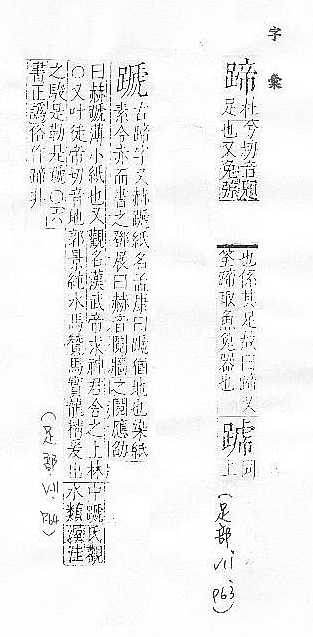 字彙
蹄 杜兮切音題
足也又兔弶
也係其足故曰蹄又
筌蹄取魚兔器也
蹏 同上
(足部 VII P63)
蹏 古蹄字又赫蹏紙名孟康曰蹏猶地也染紙
素令赤而書之鄧展曰赫音鬩牆之鬩應劭
曰赫蹏薄小紙也又觀名漢武帝求神君舍之上林中蹏氏觀
○又叶徒帝切音地郭景純水馬贊馬實龍精爰出水類渥洼
之駿是
書正譌俗作蹄非
(足部 VII P64)